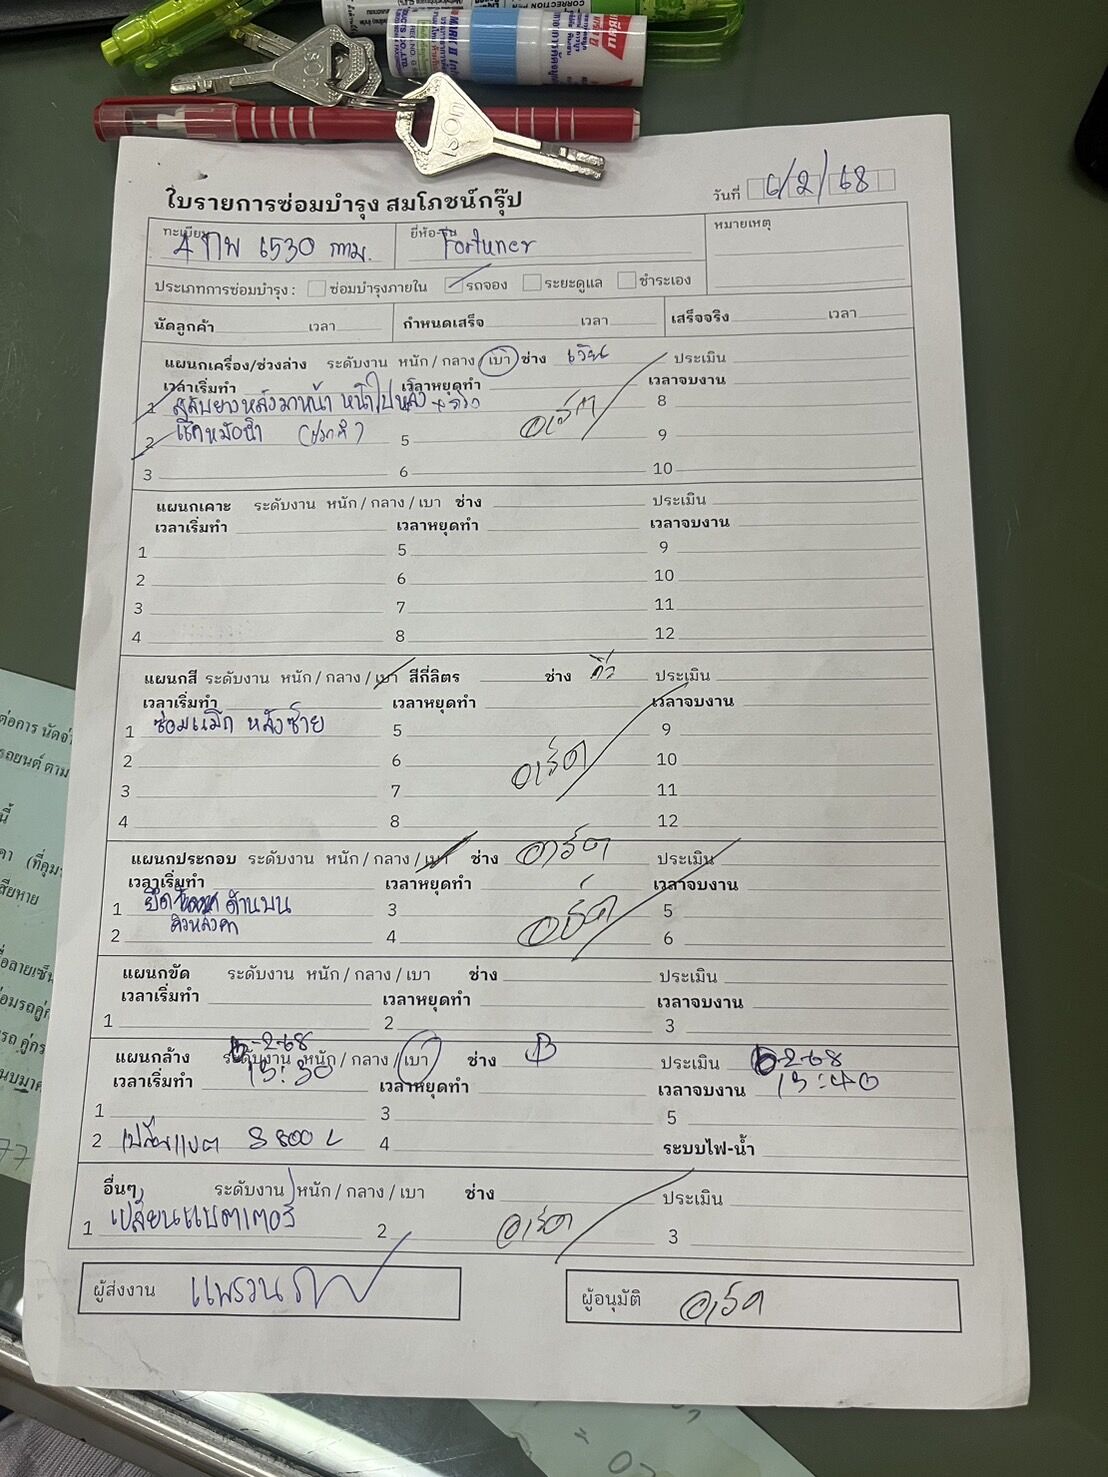 CORRECTION PEN
ใบรายการซ่อมบำรุง สมโภชน์กรุ๊ป
วันที่ 6/2/68
ทะเบียน 4 กพ 6530 กทม. ยี่ห้อ-รุ่น Fortuner หมายเหตุ
ประเภทการซ่อมบำรุง : ซ่อมบำรุงภายใน รถจอง ระยะดูแล ชำระเอง
นัดลูกค้า เวลา กำหนดเสร็จ เวลา เสร็จจริง เวลา
แผนกเครื่อง/ช่วงล่าง ระดับงาน หนัก / กลาง / เบา ช่าง ประเมิน
เวลาเริ่มทำ เวลาหยุดทำ เวลาจบงาน
1 สลับยางหลังมาหน้า หน้าไปหลัง 8
2 เช็คหม้อน้ำ 5 อาร์ต 9
3 6 10
แผนกเคาะ ระดับงาน หนัก / กลาง / เบา ช่าง ประเมิน
เวลาเริ่มทำ เวลาหยุดทำ เวลาจบงาน
1 5 9
2 6 10
3 7 11
4 8 12
แผนกสี ระดับงาน หนัก / กลาง / เบา สีกี่ลิตร ช่าง คิว ประเมิน
เวลาเริ่มทำ เวลาหยุดทำ เวลาจบงาน
1 ซ่อมแม็ก หลังซ้าย 5 9
2 6 อาร์ต 10
3 7 11
4 8 12
แผนกประกอบ ระดับงาน หนัก / กลาง / เบา ช่าง อาร์ต ประเมิน
เวลาเริ่มทำ เวลาหยุดทำ เวลาจบงาน
1 ยึด ด้านบน 3 5
2 คิ้วหลังคา 4 อาร์ต 6
แผนกขัด ระดับงาน หนัก / กลาง / เบา ช่าง ประเมิน
เวลาเริ่มทำ เวลาหยุดทำ เวลาจบงาน
1 2 3
แผนกล้าง ระดับงาน หนัก / กลาง / เบา ช่าง B ประเมิน 6-2-68
6-2-68
เวลาเริ่มทำ 13:30 เวลาหยุดทำ เวลาจบงาน 13:40
1 3 5
2 เปลี่ยนแบต 4 ระบบไฟ-น้ำ
อื่นๆ ระดับงาน หนัก / กลาง / เบา ช่าง ประเมิน
1 เปลี่ยนแบตเตอรี่ 2 อาร์ต 3
ผู้ส่งงาน ผู้อนุมัติ อาร์ต